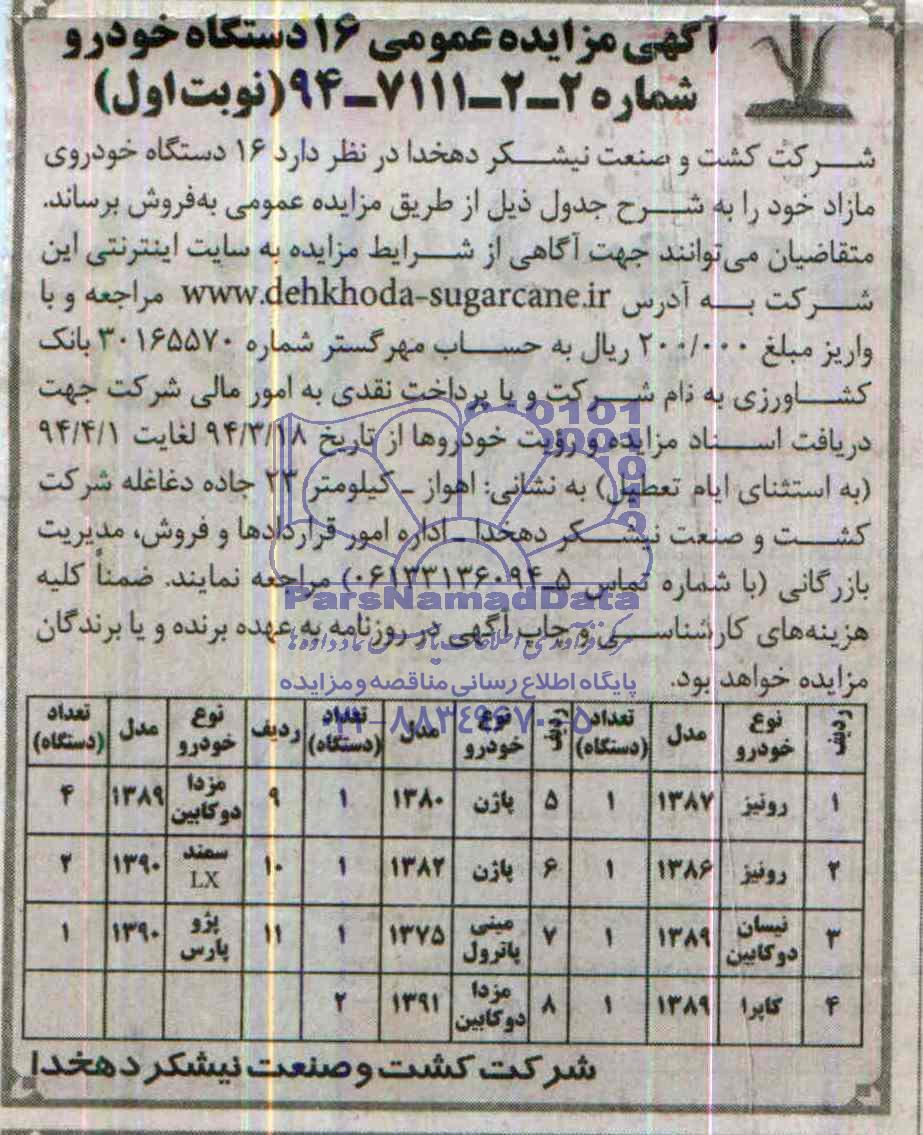 آگهی مزایده عمومی ۱۶ دستگاه خودرو
شماره ۲-۲-۷۱۱۱-۹۴ (نوبت اول)
شرکت کشت و صنعت نیشکر دهخدا در نظر دارد ۱۶ دستگاه خودروی
مازاد خود را به شرح جدول ذیل از طریق مزایده عمومی به‌فروش برساند.
متقاضیان می‌توانند جهت آگاهی از شرایط مزایده به سایت اینترنتی این
شرکت به آدرس www.dehkhoda-sugarcane.ir مراجعه و با
واریز مبلغ ۲۰۰/۰۰۰ ریال به حساب مهرگستر شماره ۳۰۱۶۵۵۷۰ بانک
کشاورزی به نام شرکت و یا پرداخت نقدی به امور مالی شرکت جهت
دریافت اسناد مزایده و رؤیت خودروها از تاریخ ۹۴/۳/۱۸ لغایت ۹۴/۴/۱
(به استثنای ایام تعطیل) به نشانی: اهواز ـ کیلومتر ۲۳ جاده دغاغله شرکت
کشت و صنعت نیشکر دهخدا ـ اداره امور قراردادها و فروش، مدیریت
بازرگانی (با شماره تماس ۵-۰۶۱۳۳۱۳۶۰۹۴) مراجعه نمایند. ضمناً کلیه
ParsNamadData
هزینه‌های کارشناسی و چاپ آگهی در روزنامه به عهده برنده و یا برندگان
مزایده خواهد بود.
پایگاه اطلاع رسانی مناقصه و مزایده
۰۲۱-۸۸۳۴۹۶۷۰-۵
ردیف نوع خودرو مدل تعداد (دستگاه) ردیف نوع خودرو مدل تعداد (دستگاه) ردیف نوع خودرو مدل تعداد (دستگاه)
۱ رونیز ۱۳۸۷ ۱ ۵ پاژن ۱۳۸۰ ۱ ۹ مزدا دوکابین ۱۳۸۹ ۴
۲ رونیز ۱۳۸۶ ۱ ۶ پاژن ۱۳۸۲ ۱ ۱۰ سمند LX ۱۳۹۰ ۲
۳ نیسان دوکابین ۱۳۸۹ ۱ ۷ مینی پاترول ۱۳۷۵ ۱ ۱۱ پژو پارس ۱۳۹۰ ۱
۴ کاپرا ۱۳۸۹ ۱ ۸ مزدا دوکابین ۱۳۹۱ ۲
شرکت کشت و صنعت نیشکر دهخدا